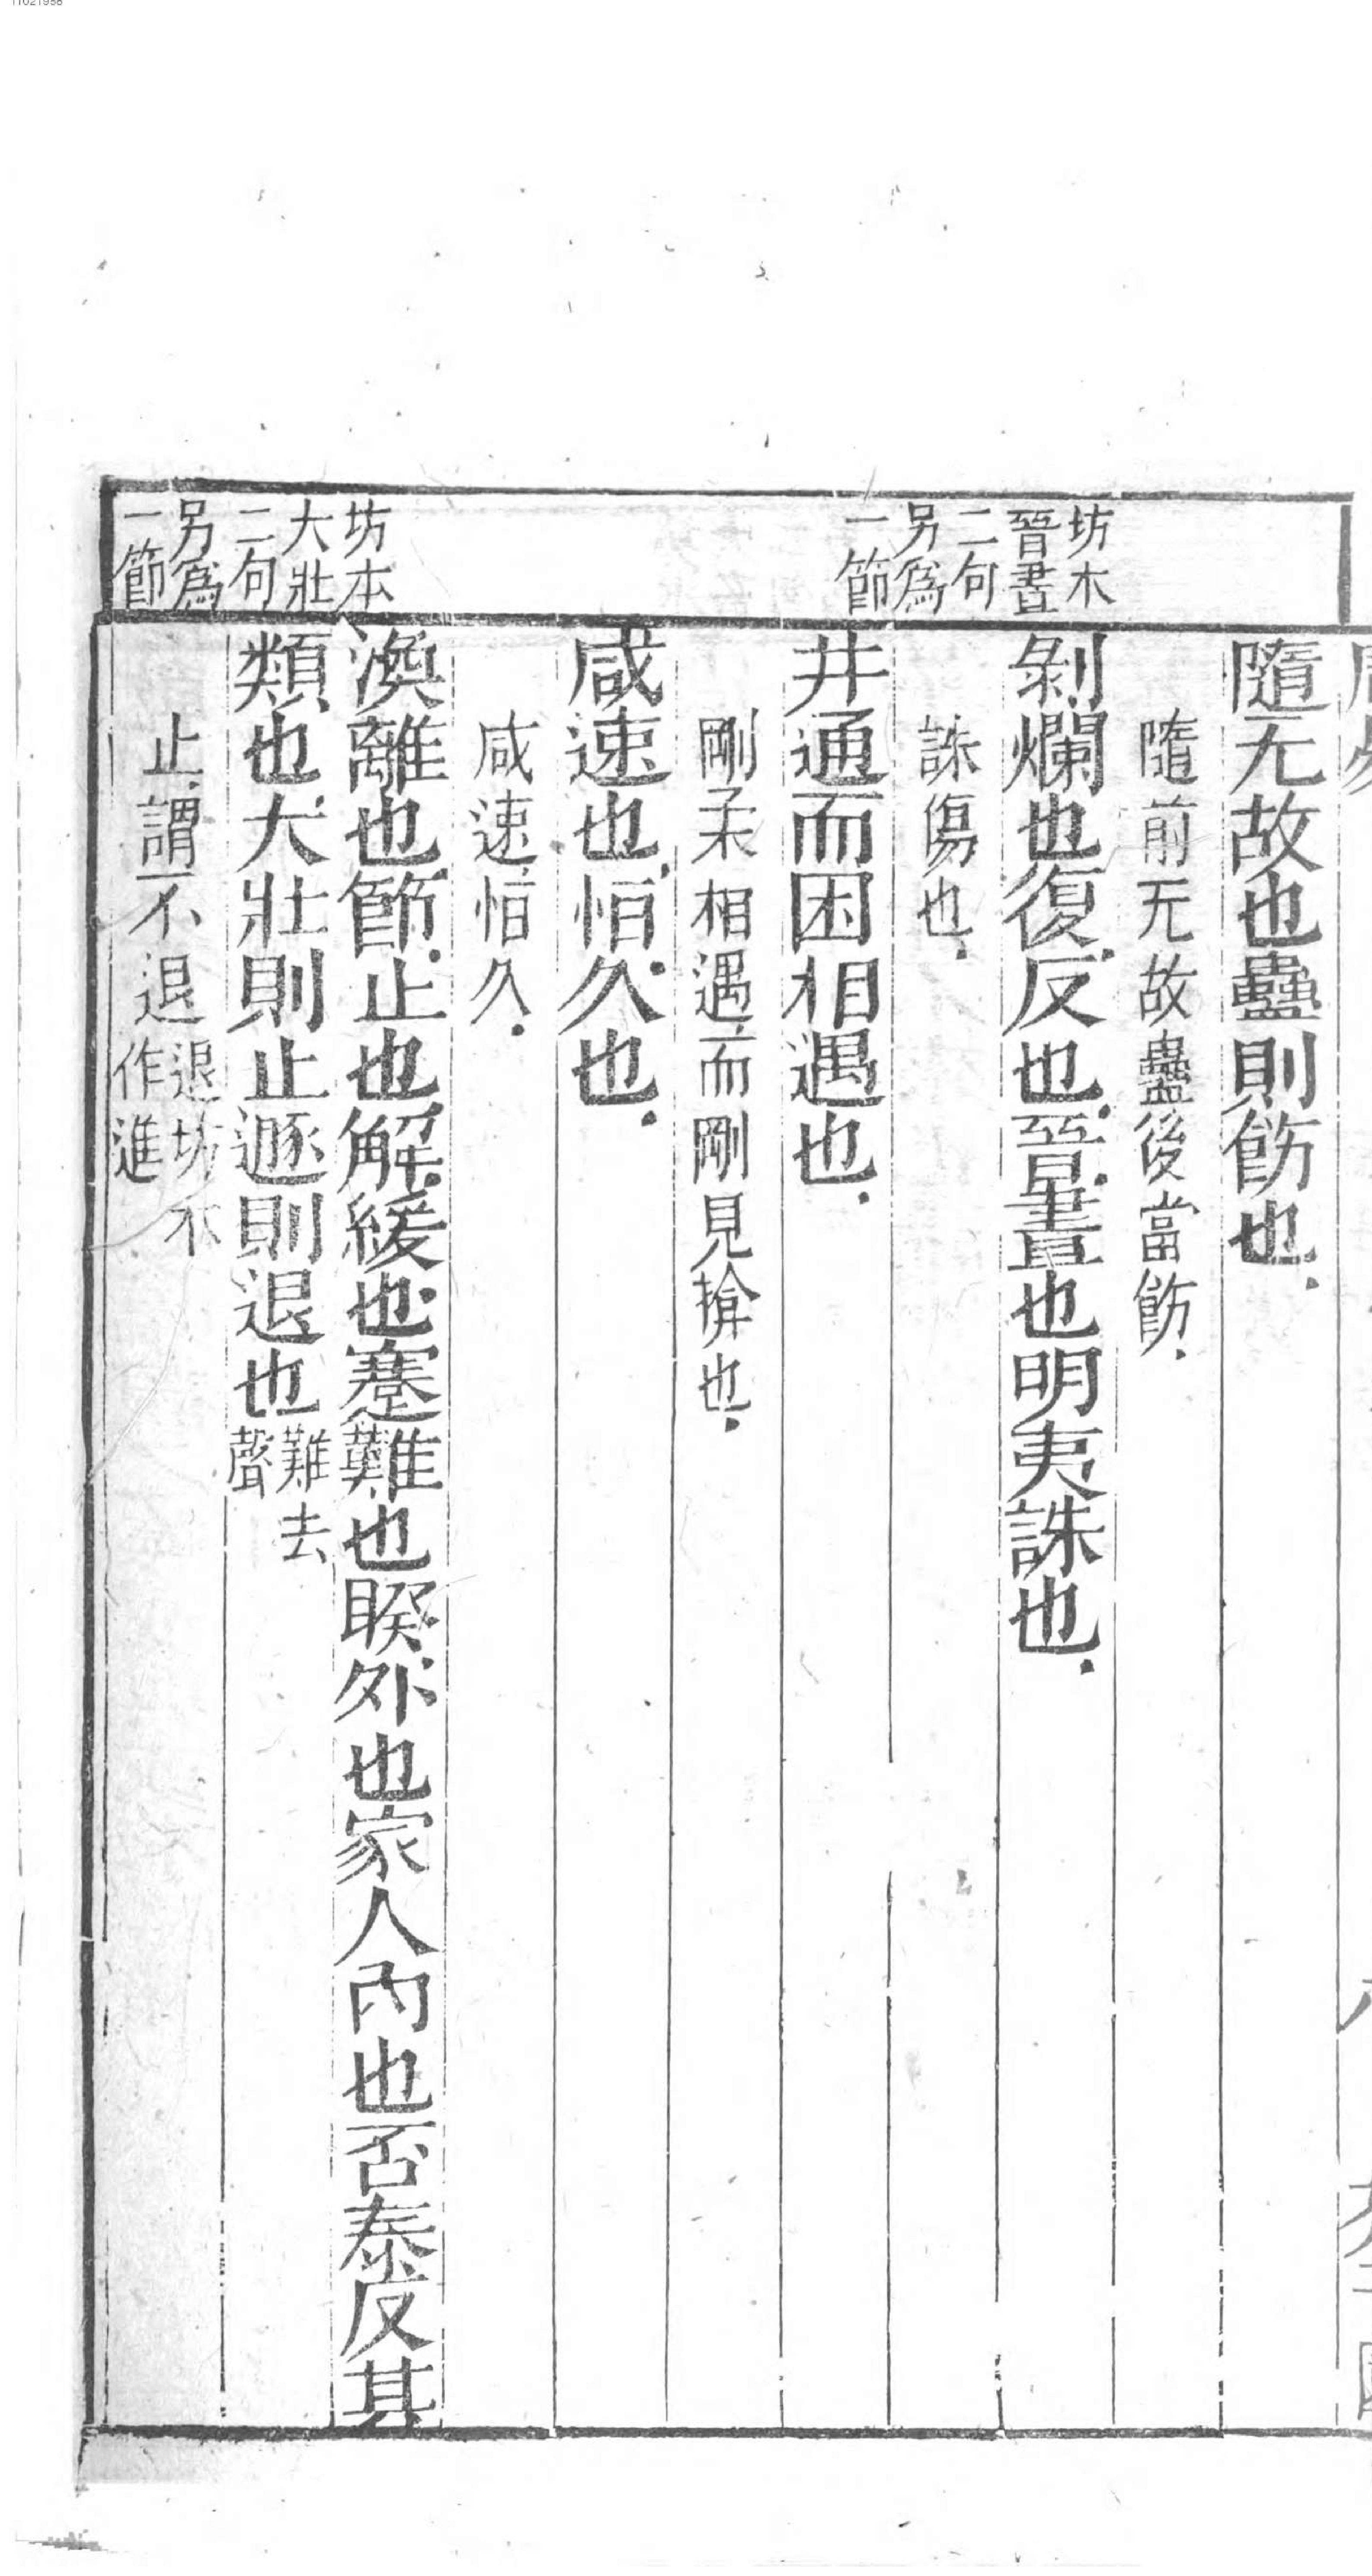 坊本
晉晝
二句
另爲
一節
坊本
大壯
二句
另爲
一節
隨无故也蠱則飭也.
隨前无故蠱後當飭.
剝爛也復.反也.晉.晝也明夷誅也.
誅傷也.
井通而困相遇也.
剛柔相遇而剛見揜也.
咸速也.恒.久也.
咸速恒久.
渙離也節.止也解.緩也.蹇難也睽.外也家人內也否泰反其
類也.大壯則止遯則退也難去
聲
止謂不退退坊本
作進